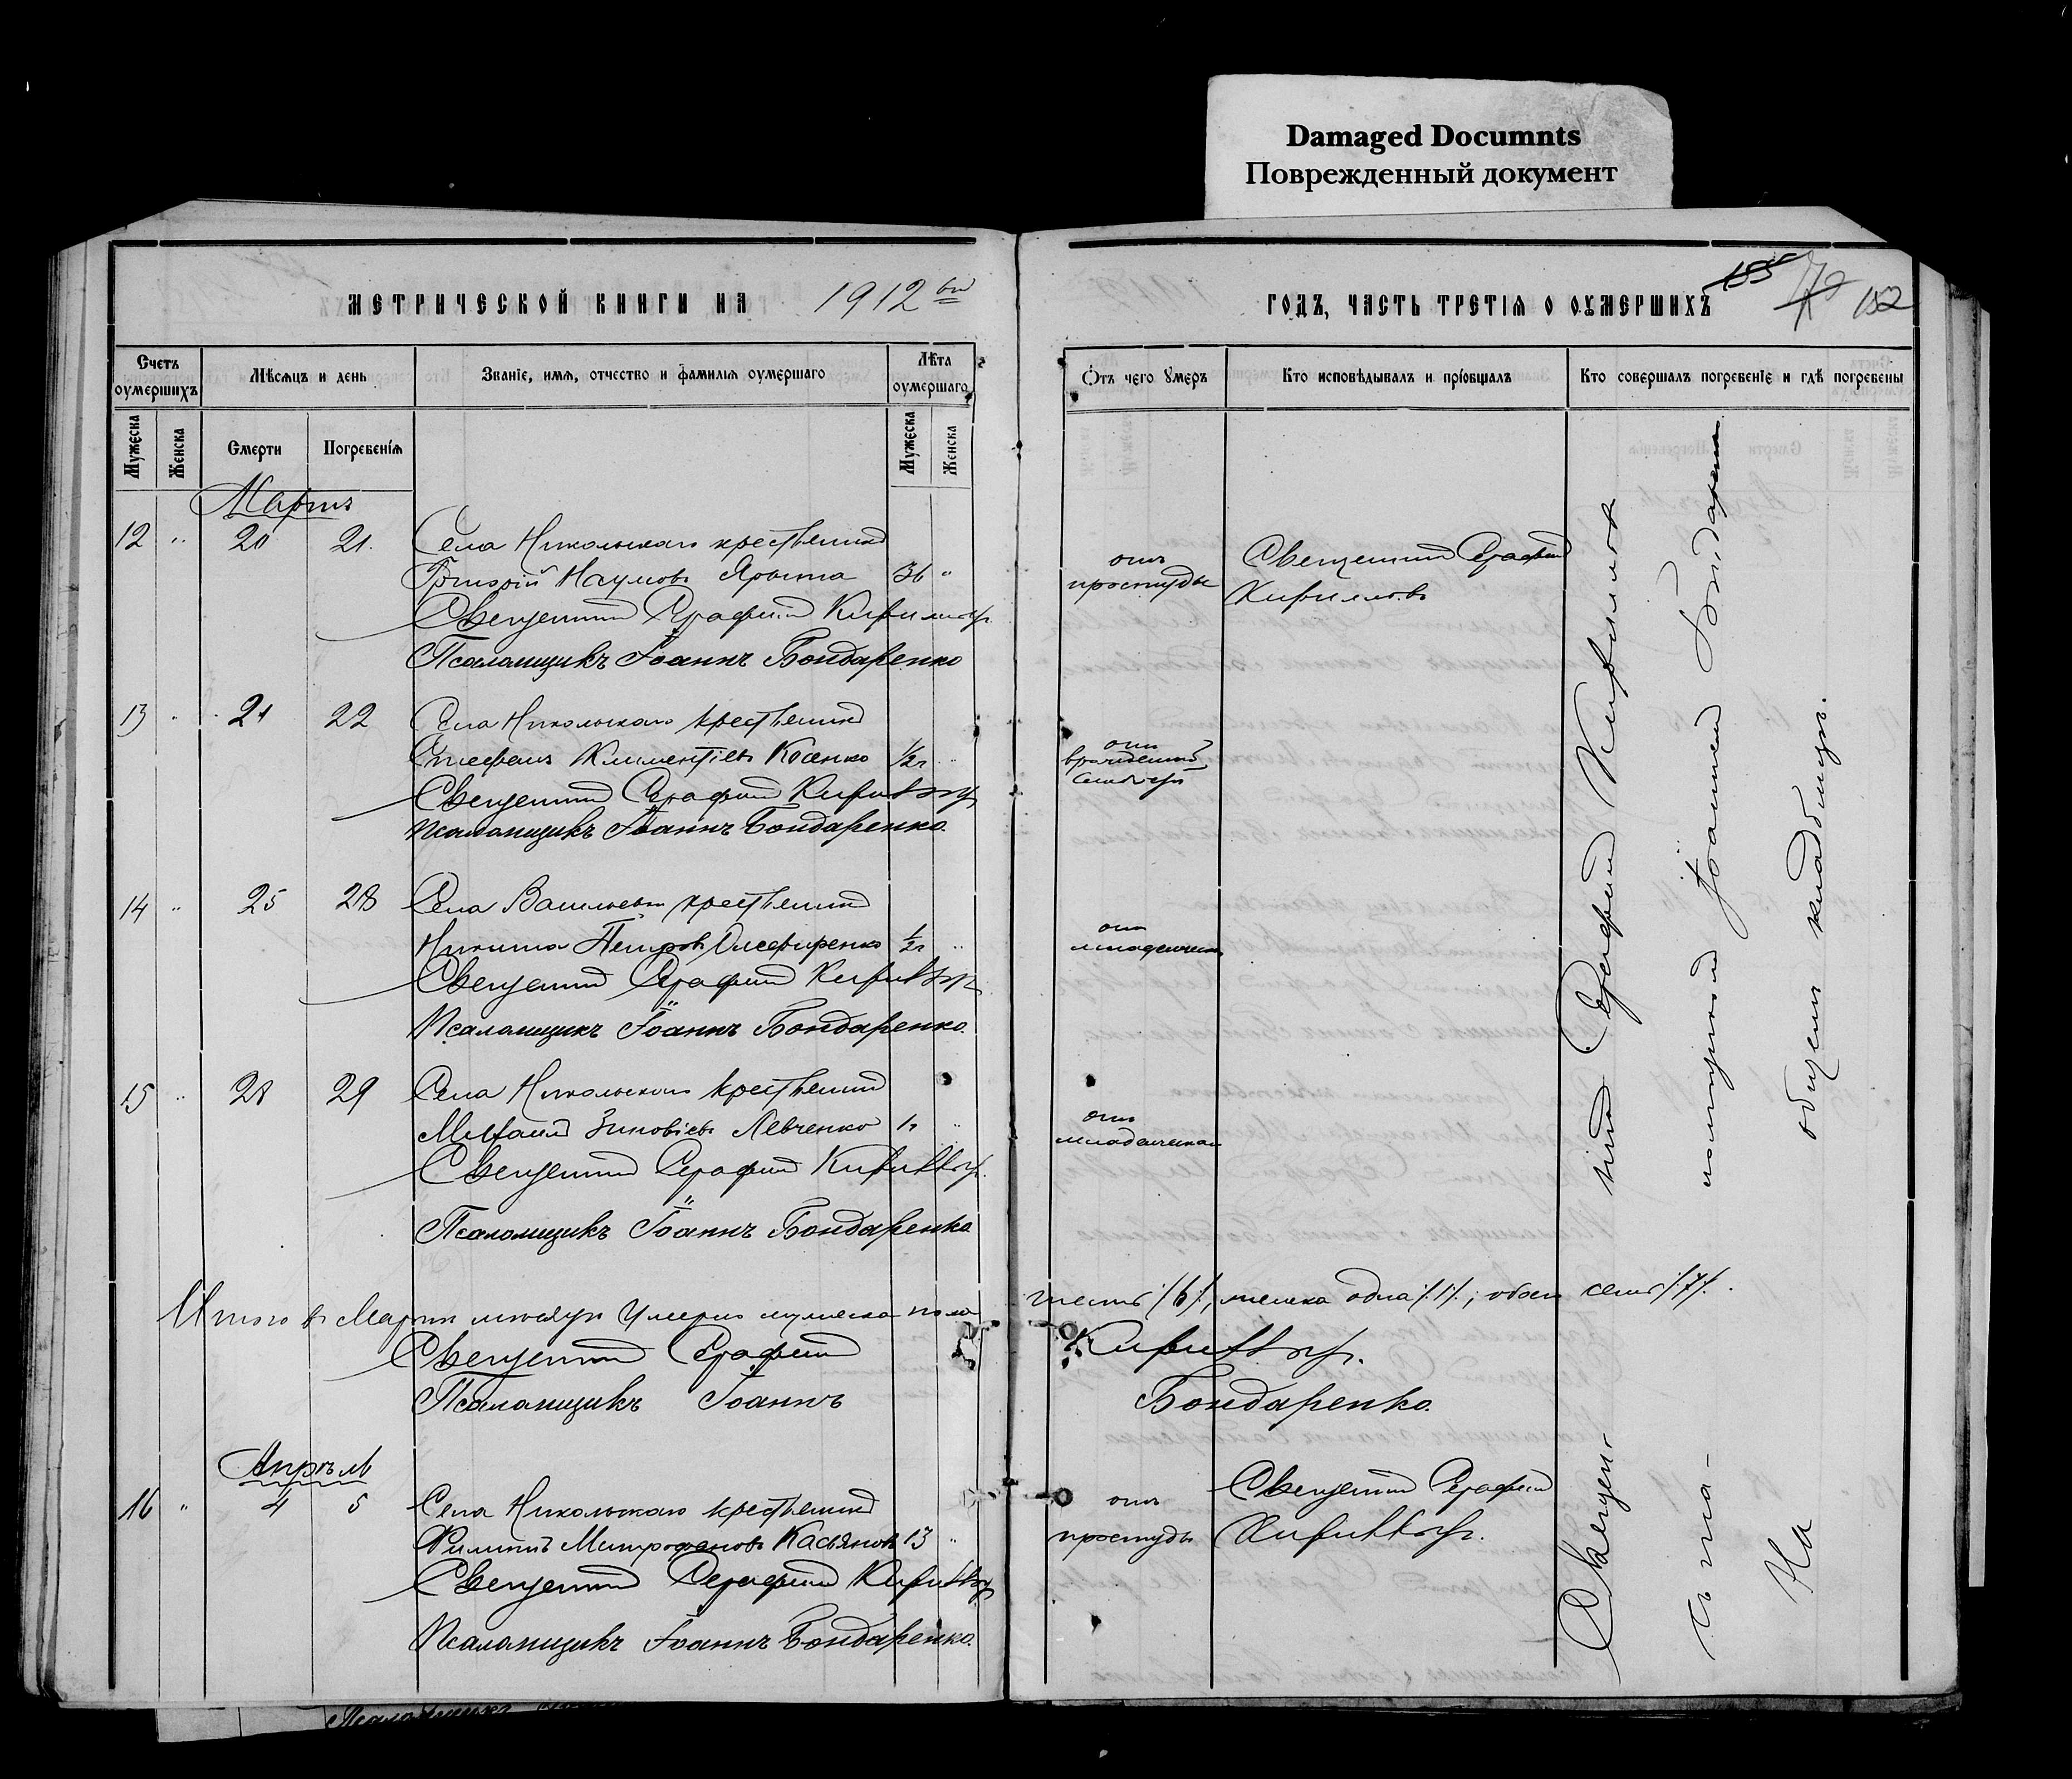 Damaged Documnts
Поврежденный документ
МЕТРИЧЕСКОЙ КНИГИ НА 1912
ГОДЪ, ЧАСТЬ ТРЕТІЯ О ОУМЕРШИХЪ
155 152
Счетъ оумершихъ
Мѣсяцъ и день
Званіе, имя, отчество и фамилія оумершаго
Лѣта оумершаго
Отъ чего умеръ
Кто исповѣдывалъ и пріобщалъ
Кто совершалъ погребеніе и гдѣ погребены
Мужеска
Женска
Смерти
Погребенія
Мужеска
Женска
Мартъ
12 " 20 21. Села Никольскаго крестьянинъ
Григорій Наумовъ Ярыта 36 "
отъ простуды
Священникъ Серафимъ
Кирилловъ
Священникъ Серафимъ Кирилловъ
Псаломщикъ Іоаннъ Бондаренко
13 " 21 22 Села Никольскаго крестьянинъ
Стефанъ Климентіевъ Косенко 1/2 г "
отъ врожденной слабости
Священникъ Серафимъ Кирилловъ
Псаломщикъ Іоаннъ Бондаренко.
14 " 25 28 Села Васильевки крестьянинъ
Никита Петровъ Олеференко 1/2 г "
отъ младенческой
Священникъ Серафимъ Кирилловъ
Псаломщикъ Іоаннъ Бондаренко.
15 " 28 29 Села Никольскаго крестьянинъ
Михаилъ Зиновіевъ Левченко 1 г "
отъ младенческой
Священникъ Серафимъ Кирилловъ.
Псаломщикъ Іоаннъ Бондаренко
Итого въ Мартѣ мѣсяцѣ умерло мужеска пола шесть /6/, женска одна /1/, обоего семь /7/.
Священникъ Серафимъ Кирилловъ.
Псаломщикъ Іоаннъ Бондаренко.
Апрѣль
16 " 4 5 Села Никольскаго крестьянинъ
Филиппъ Митрофановъ Касьяновъ 13 "
отъ простуды
Священникъ Серафимъ
Кирилловъ.
Священникъ Серафимъ Кирилловъ
Псаломщикъ Іоаннъ Бондаренко.
Священ-никъ Серафимъ Кирилловъ
съ псаломщикомъ Іоанномъ Бондаренко
На общемъ кладбищѣ.